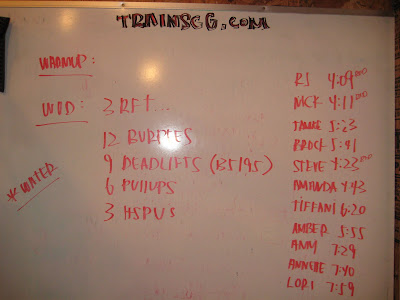 TRAINSCG.COM
WARMUP:
WOD:
3 RFT...
12 BURPEES
9 DEADLIFTS (135/95)
6 PULLUPS
3 HSPUS
*WATER
RJ 4:09
NICK 4:11
5:23
BROCK 5:41
STEVE 4:23
AMANDA 4:43
TIFFANI 6:20
AMBER 5:55
AMY 7:29
ANNETTE 7:40
LORI 7:59